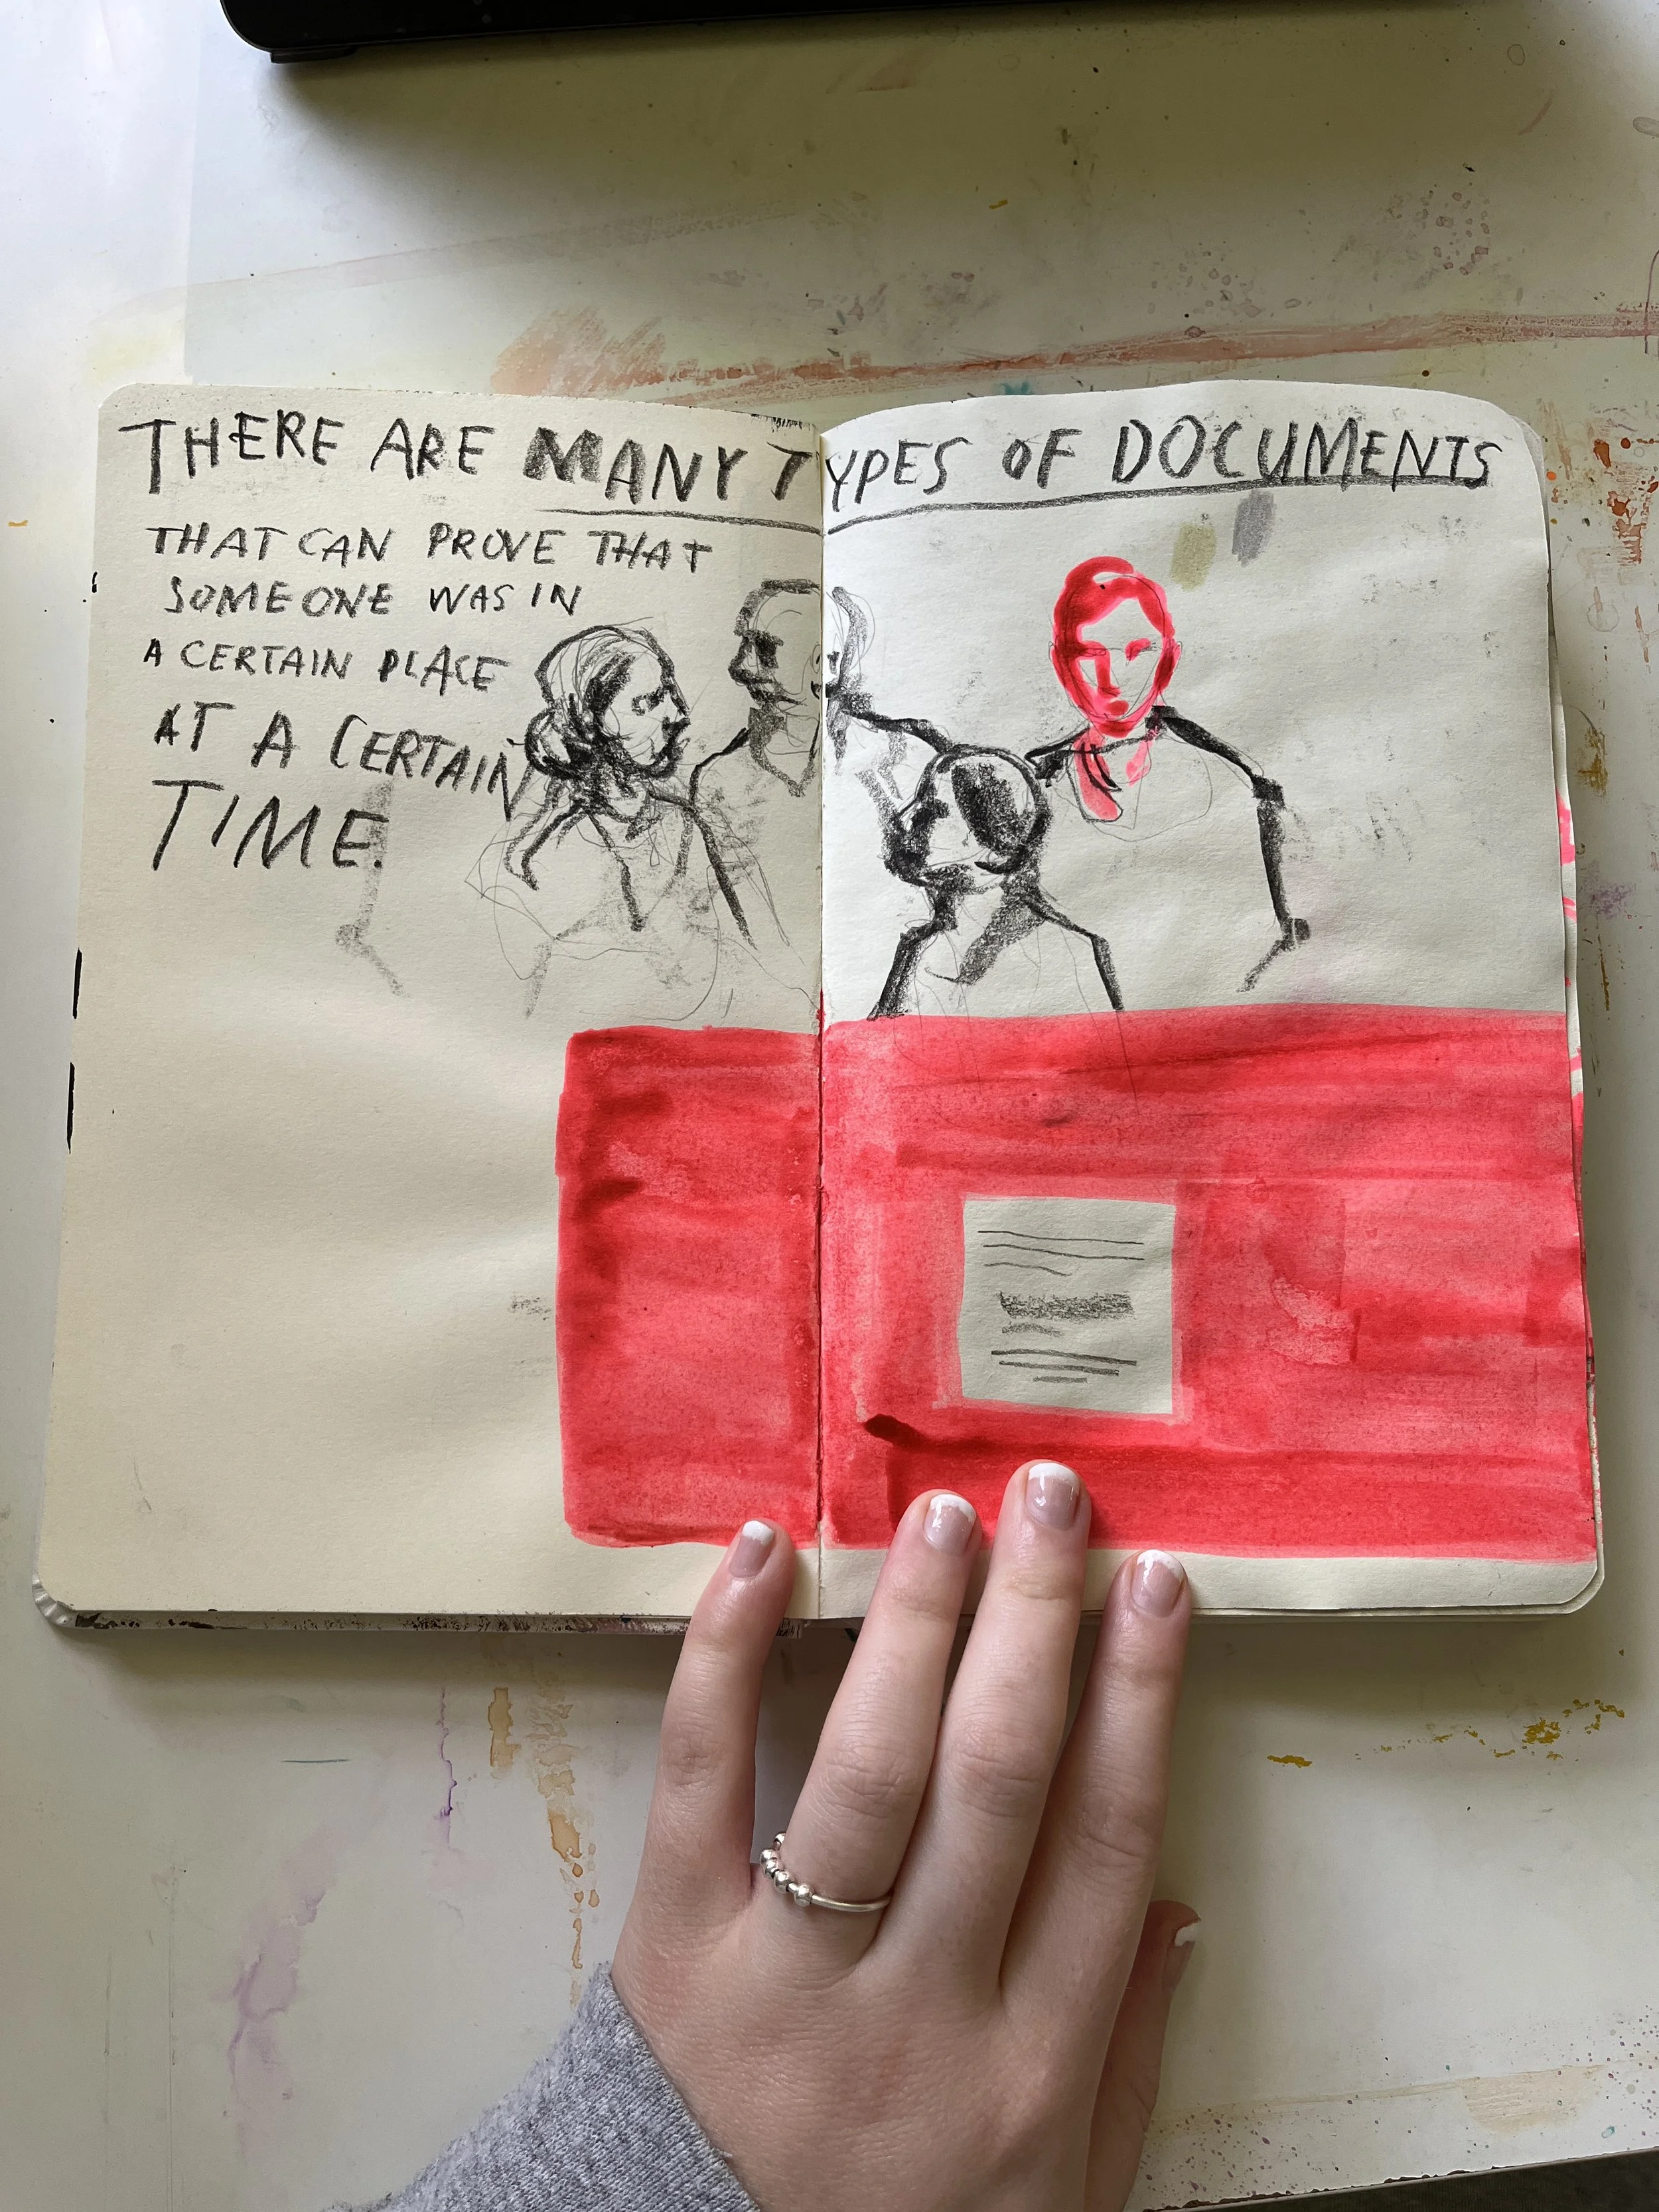 THERE ARE MANY TYPES OF DOCUMENTS
THAT CAN PROVE THAT
SOMEONE WAS IN
A CERTAIN PLACE
AT A CERTAIN
TIME.